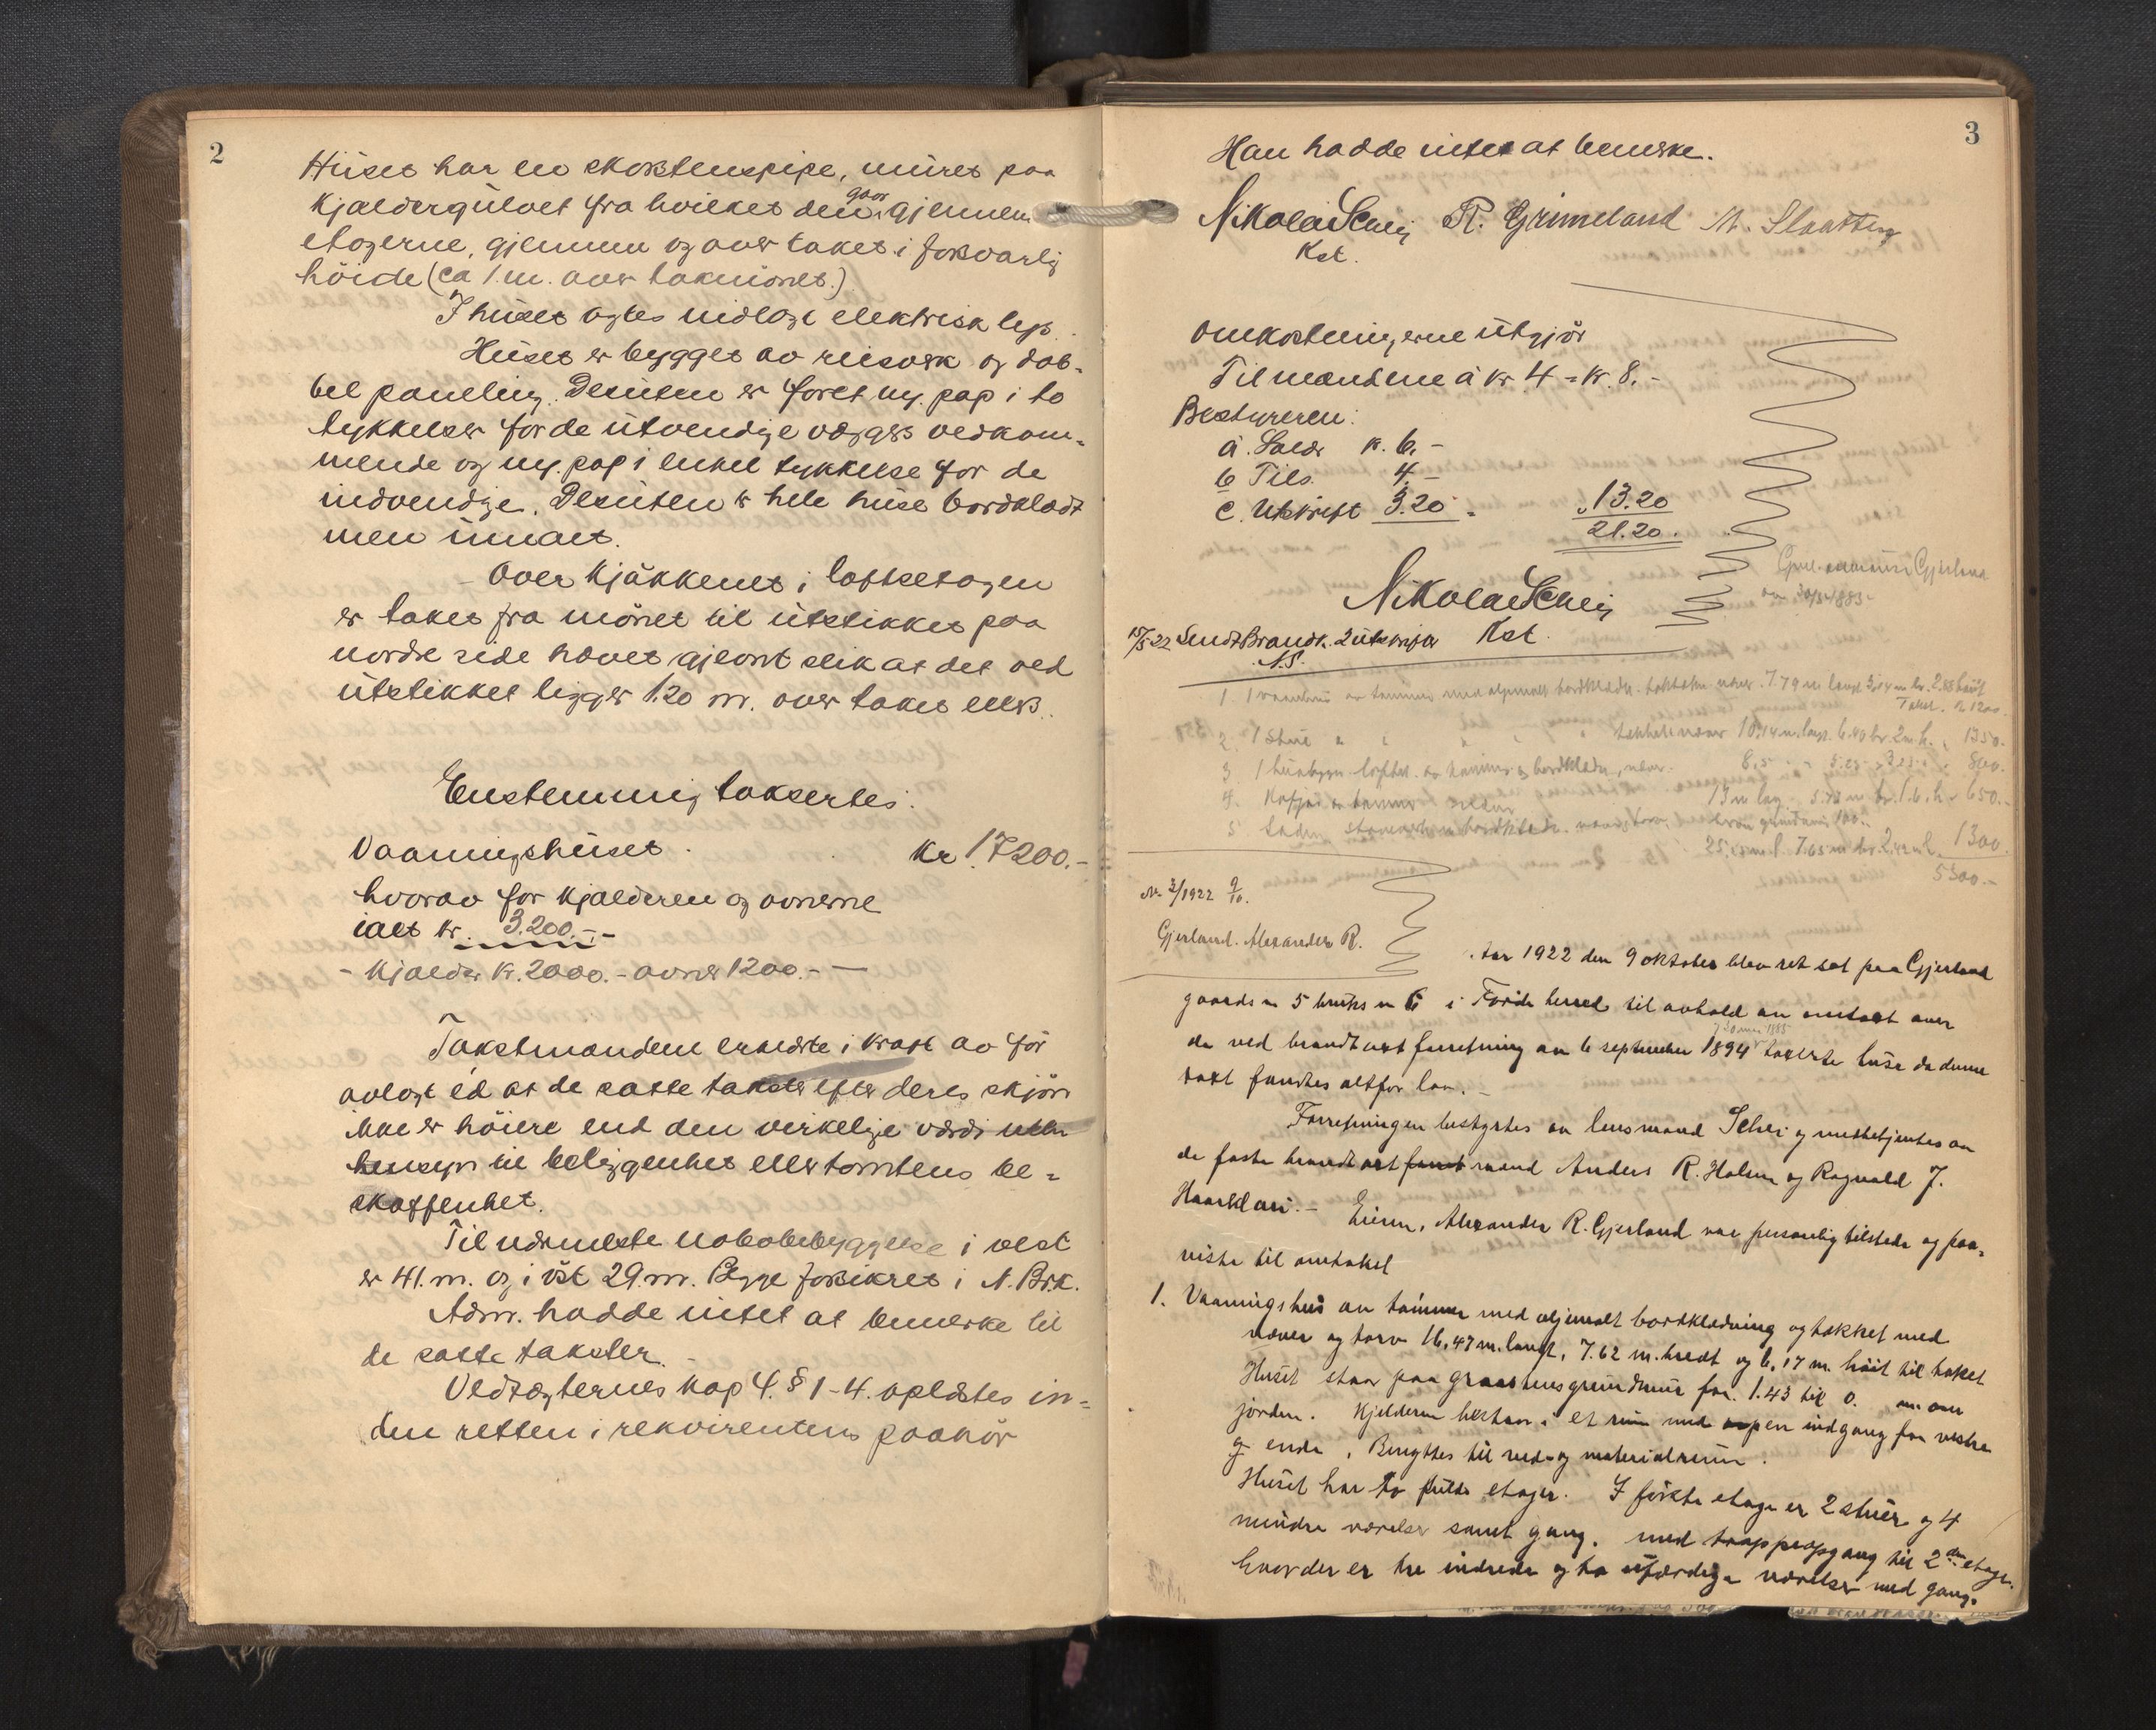 2
Huset har en skorstenspipe, muret paa
kjældergulvet fra hvilket den gaar gjennem
etagerne, gjennem og over taket i forsvarlig
höide (ca 1 m. over takmönet.)
I huset agtes indlagt elektrisk lys.
Huset er bygget av reisverk og dob-
bel paneling. Desuten er foret my. pap i to
tykkelser for de utvendige vægges vedkom-
mende og my. pap i enkel tykkelse for de
indvendige. Desuten er hele huse bordklædt
men umalt.
Over kjökkenet i loftsetagen
er taket fra mönet til utstikket paa
nordre side hævet gjevnt slik at det ved
utstikket ligger 1.20 m. over taket ellers.
Enstemmig taksertes:
Vaaningshuset. kr. 17200.-
hvorav for kjælderen og ovnerne
ialt kr. 3.200.--
- Kjælder kr. 2000.- ovner 1200.-
Takstmændene erklærte i kraft av för
avlagt ed at de satte takster efter deres skjön
ikke er höiere end den virkelige værdi uten
hensyn til beliggenhet eller tomtens be-
skaffenhet.
Til nærmeste nabobebyggelse i vest
er 41. m. og i öst 29. m. Begge forsikret i N. Brk.
Adm. hadde intet at bemerke til
de satte takster.
Vedtægternes kap 4. § 1-4. oplæstes in-
den retten i rekvirentens paahör
3
Han hadde intet at bemerke.
Nikolai Schei R. Grimeland M. Slaatten
Kst.
Omkostningerne utgjör
Til mændene à kr 4 = kr. 8.-
Bestyreren:
a. Salær k. 6.-
b Tils. 4.-
c. Utskrift 3.20 „ 13.20
21.20.
Nikolai Schei
15/5 22 Sendt Brandk. 2 utskrifter Kst.
N.S.
Gjerland
av 30/5 1885
1. 1 av tømmer med oljemalt bordklædn. 7.79 m langt 3,14 m br. 2.88 høit
Takst. kr 1200.
2. 1 Stue 10,14 m. langt. 6.40 br. 2 m h. 1350.-
3 1 av tømmer og bordklædn, 8,5 800.-
4. av tømmer 13 m lang 650.-
5. Laden bordklædn. 100.-
25, m l. 7.65 m br. 1300.
5300.-
Nr. 3/1922 9/10.
Gjerland. Alexander R.
Aar 1922 den 9 oktober blev ret sat paa Gjerland
gaards n 5 bruks n 6 i Förde herred til avhold av omtaxt over
de ved brandtaxtforretning av 6 september 1894 taxerte huse da denne
taxt fandtes altfor lav.
Forretningen bestyrtes av lensmand Schei og medbetjentes av
de faste brandtaxtmænd Anders R. Halvn og Ragnvald J.
Haarklau. - Eieren, Alexander R. Gjerland var personlig tilstede og paa-
viste til omtakst
1. Vaaningshus av tömmer med oljemalt bordklædning og tækket med
næver og torv 16,47 m. langt, 7.62 m. bredt og 6,17 m. höit til taket
Huset staar paa graastensgrundmur fra 1.43 til 0. m. over
jorden. Kjelderen bestaar i et rum med aapen indgang fra vestre
ende. Benyttes til ved- og materialrum.
Huset har to fulde etager. I förste etage er 2 stuer og 4
mindre værelser samt gang. med trappeopgang til 2den etage.
hvor der er tre indrede og to ufærdige værelser med gang.